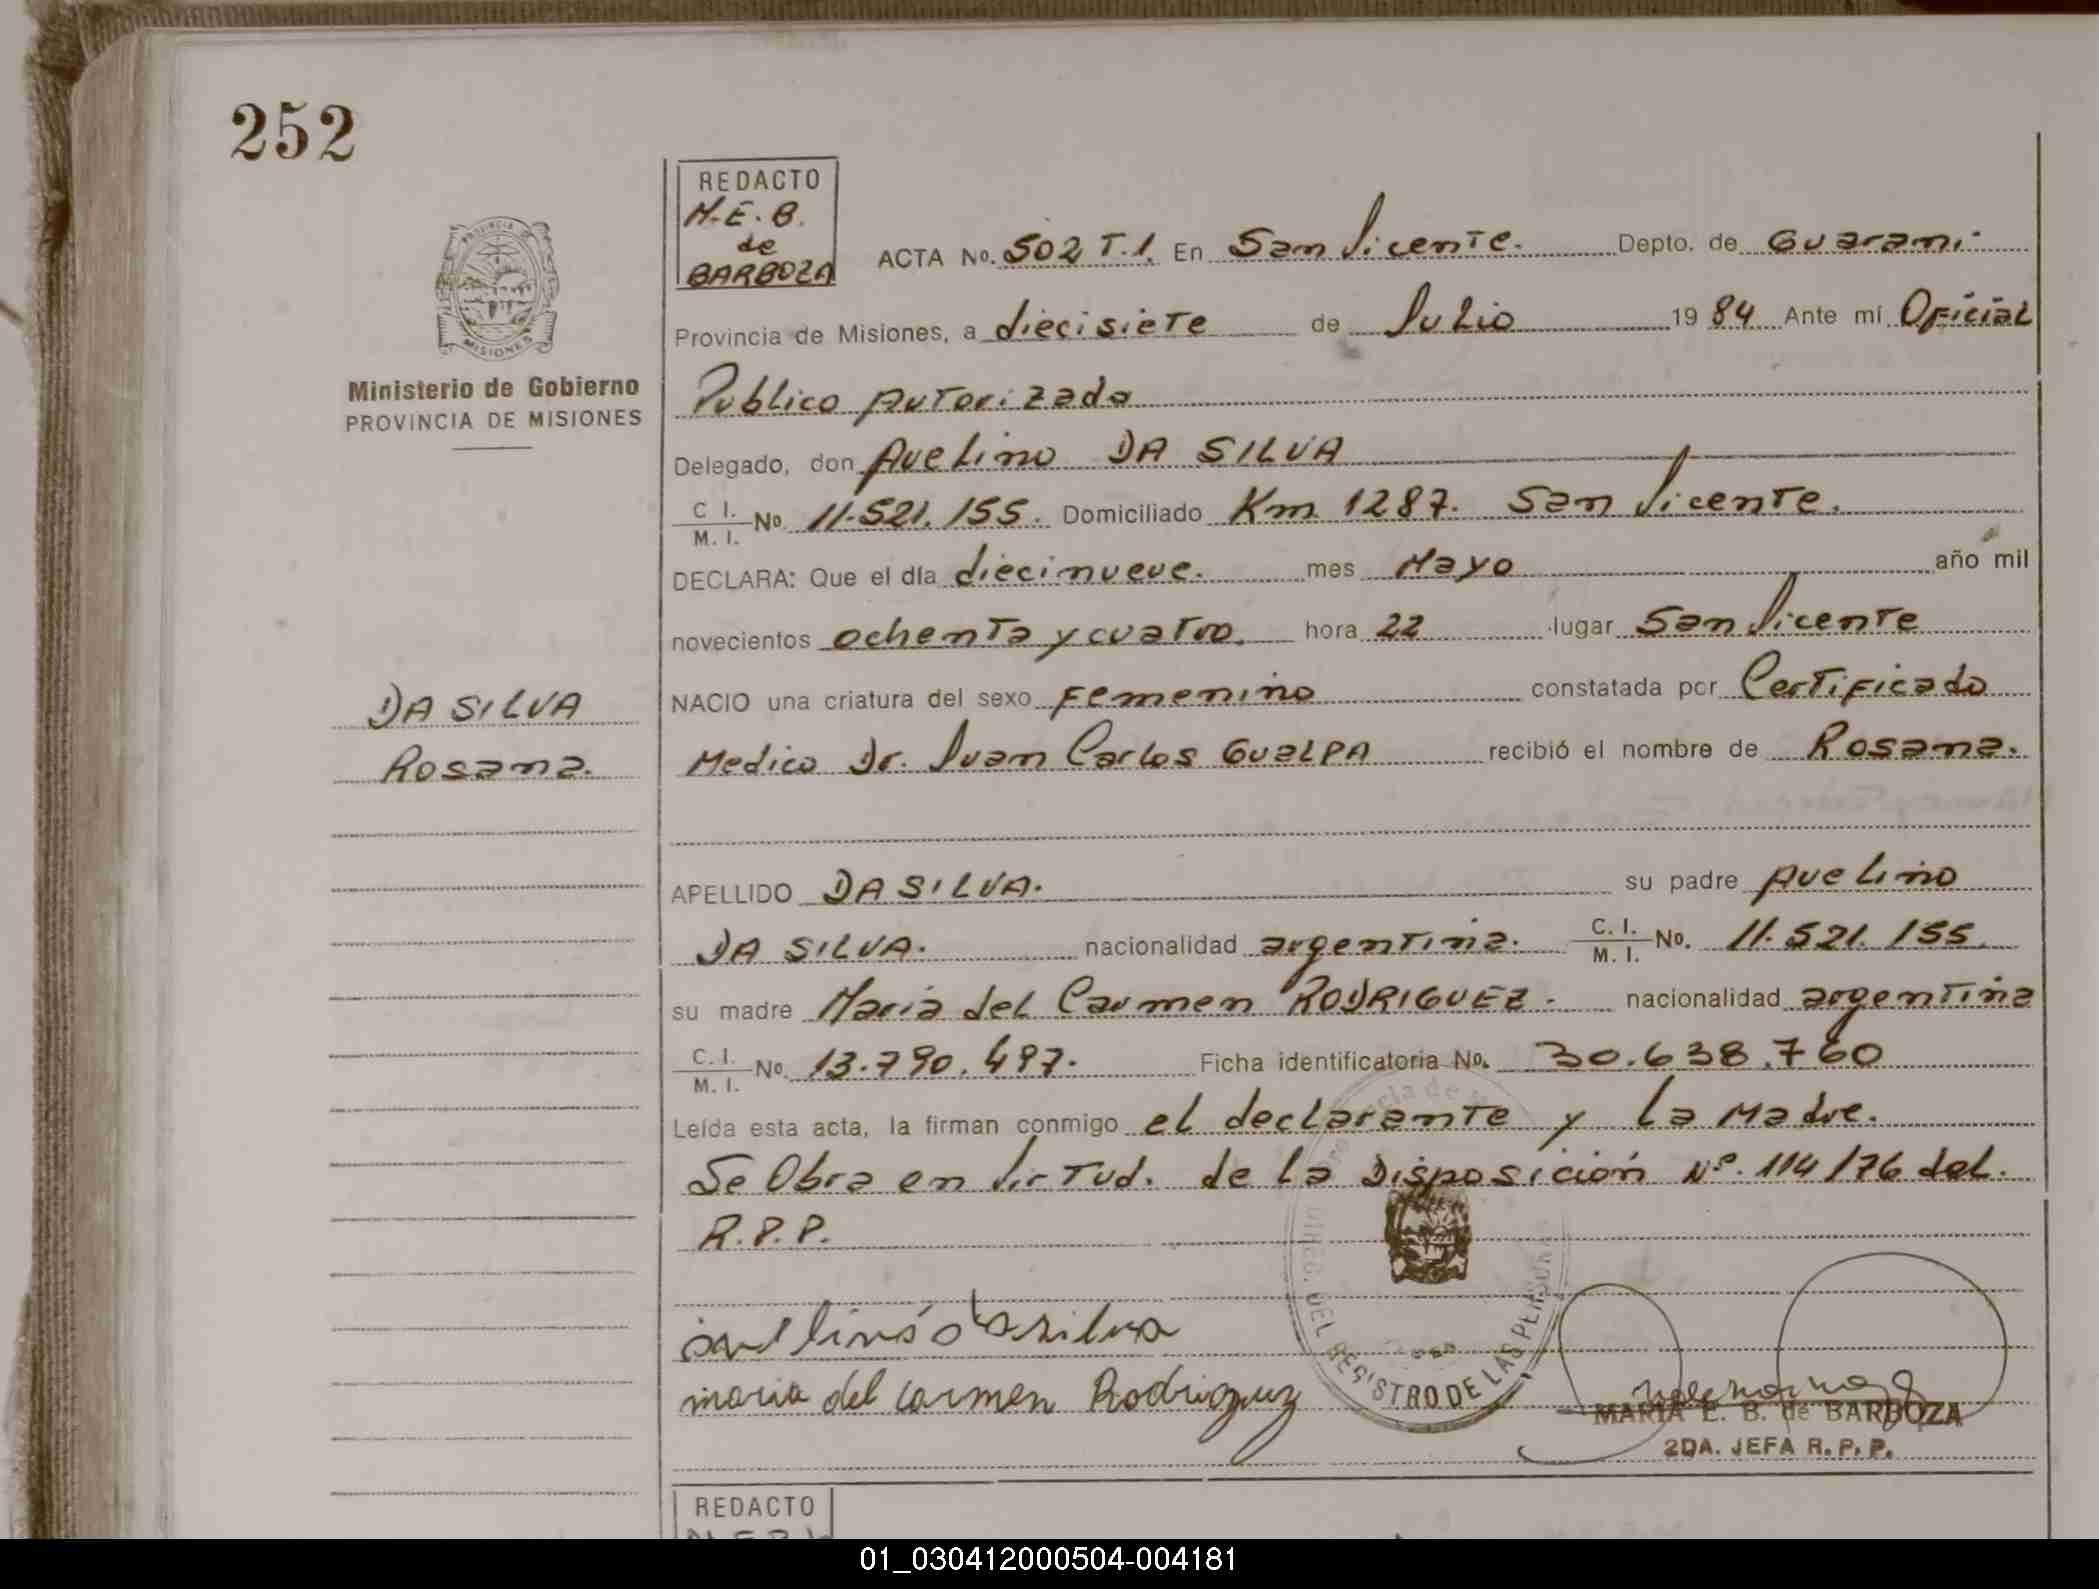 252
REDACTO
M.E.B.
de
BARBOZA
PROVINCIA
MISIONES
Ministerio de Gobierno
PROVINCIA DE MISIONES
ACTA No. 502 T.1. En San Vicente. Depto. de Guarani
Provincia de Misiones, a diecisiete de Julio 19 84 Ante mí Oficial
Publico Autorizado
Delegado, don Avelino DA SILVA
C. I. / M. I. No 11.521.155. Domiciliado Km 1287. San Vicente.
DECLARA: Que el día diecinueve. mes Mayo año mil
novecientos ochenta y cuatro. hora 22 lugar San Vicente
DA SILVA
Rosana.
NACIO una criatura del sexo Femenino constatada por Certificado
Medico Dr. Juan Carlos GUALPA recibió el nombre de Rosana.
APELLIDO DA SILVA. su padre Avelino
DA SILVA. nacionalidad argentina. C. I. / M. I. No. 11.521.155
su madre Maria del Carmen RODRIGUEZ. nacionalidad argentina
C. I. / M. I. No. 13.790.497. Ficha identificatoria No. 30.638.760
Leída esta acta, la firman conmigo el declarante y la Madre.
Se Obra en Virtud. de la Disposición Nº. 114/76 del.
R.P.P.
DIREC. DEL REGISTRO DE LAS PERSONAS
maria del carmen Rodriguez
MARIA E. B. de BARBOZA
2DA. JEFA R. P. P.
REDACTO
01_030412000504-004181